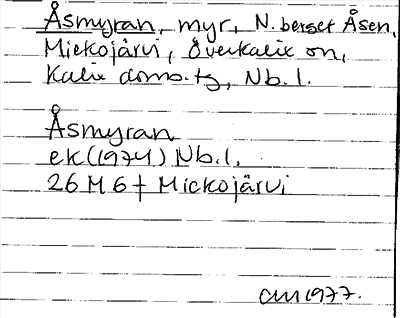 Åsmyran, myr, N. berget Åsen,
Mickojärvi, Överkalix sn,
Kalix doms.tg, Nb.l.
Åsmyran
ek(1974) Nb.l,
26 M 6 f Mickojärvi
CM 1977.